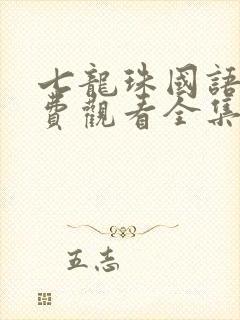 七龍珠國語
費觀看全集
五志